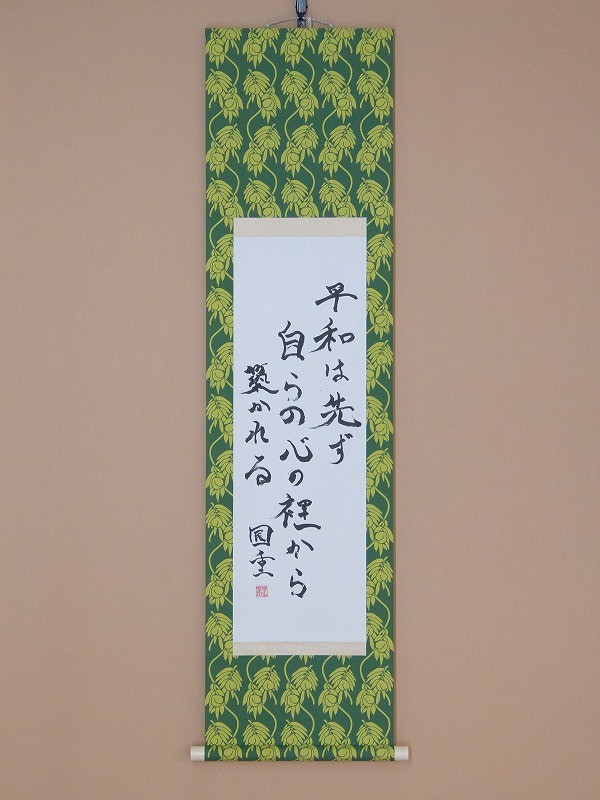 平和は先ず
自らの心の裡から
築かれる
国重